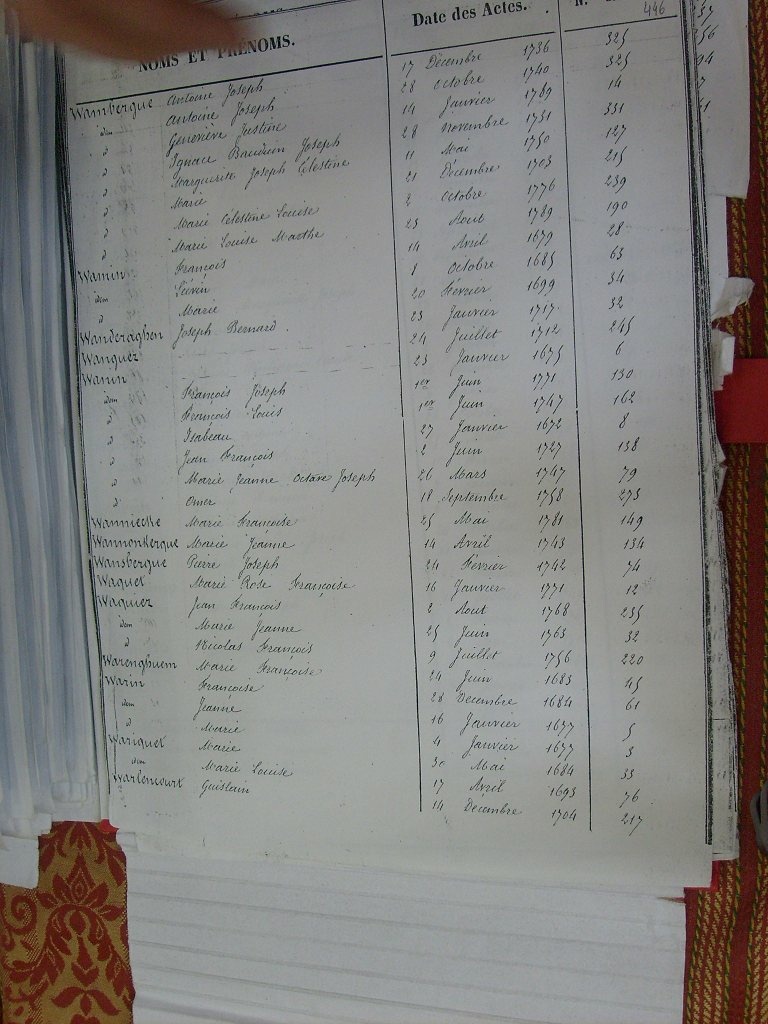 NOMS ET PRÉNOMS. Date des Actes. 446
Wambergue Antoine Joseph 17 Décembre 1736 325
idem Antoine Joseph 28 Octobre 1740 325
d Geneviève Justine 14 Janvier 1789 14
d Ignace Bauduin Joseph 28 Novembre 1731 331
d Marguerite Joseph Célestine 11 Mai 1750 127
d Marie 21 Décembre 1703 215
d Marie Célestine Louise 2 Octobre 1776 239
d Marie Louise Marthe 23 Aout 1789 190
Wamin François 14 Avril 1679 28
idem Liévin 8 Octobre 1685 63
d Marie 20 Février 1699 34
Wanderaghen Joseph Bernard 23 Janvier 1717 32
Wanquez 24 Juillet 1712 245
Wanin 23 Janvier 1675 6
idem François Joseph 1er Juin 1771 130
d François Louis 1er Juin 1747 162
d Isabeau 27 Janvier 1672 8
d Jean François 2 Juin 1727 138
d Marie Jeanne Octave Joseph 26 Mars 1747 79
d Omer 18 Septembre 1758 273
Wanniecke Marie Françoise 25 Mai 1781 149
Wannonkerque Marie Jeanne 14 Avril 1743 134
Wansbergue Pierre Joseph 24 Février 1742 74
Waquet Marie Rose Françoise 16 Janvier 1771 12
Waquiez Jean François 2 Aout 1768 235
idem Marie Jeanne 25 Juin 1763 32
d Nicolas François 9 Juillet 1756 220
Warenghuem Marie Françoise 24 Juin 1683 45
Warin Françoise 28 Décembre 1684 61
idem Jeanne 16 Janvier 1677 5
d Marie 4 Janvier 1677 3
Wariquet Marie 30 Mai 1684 33
idem Marie Louise 17 Avril 1693 76
Warlencourt Guislain 14 Décembre 1704 217